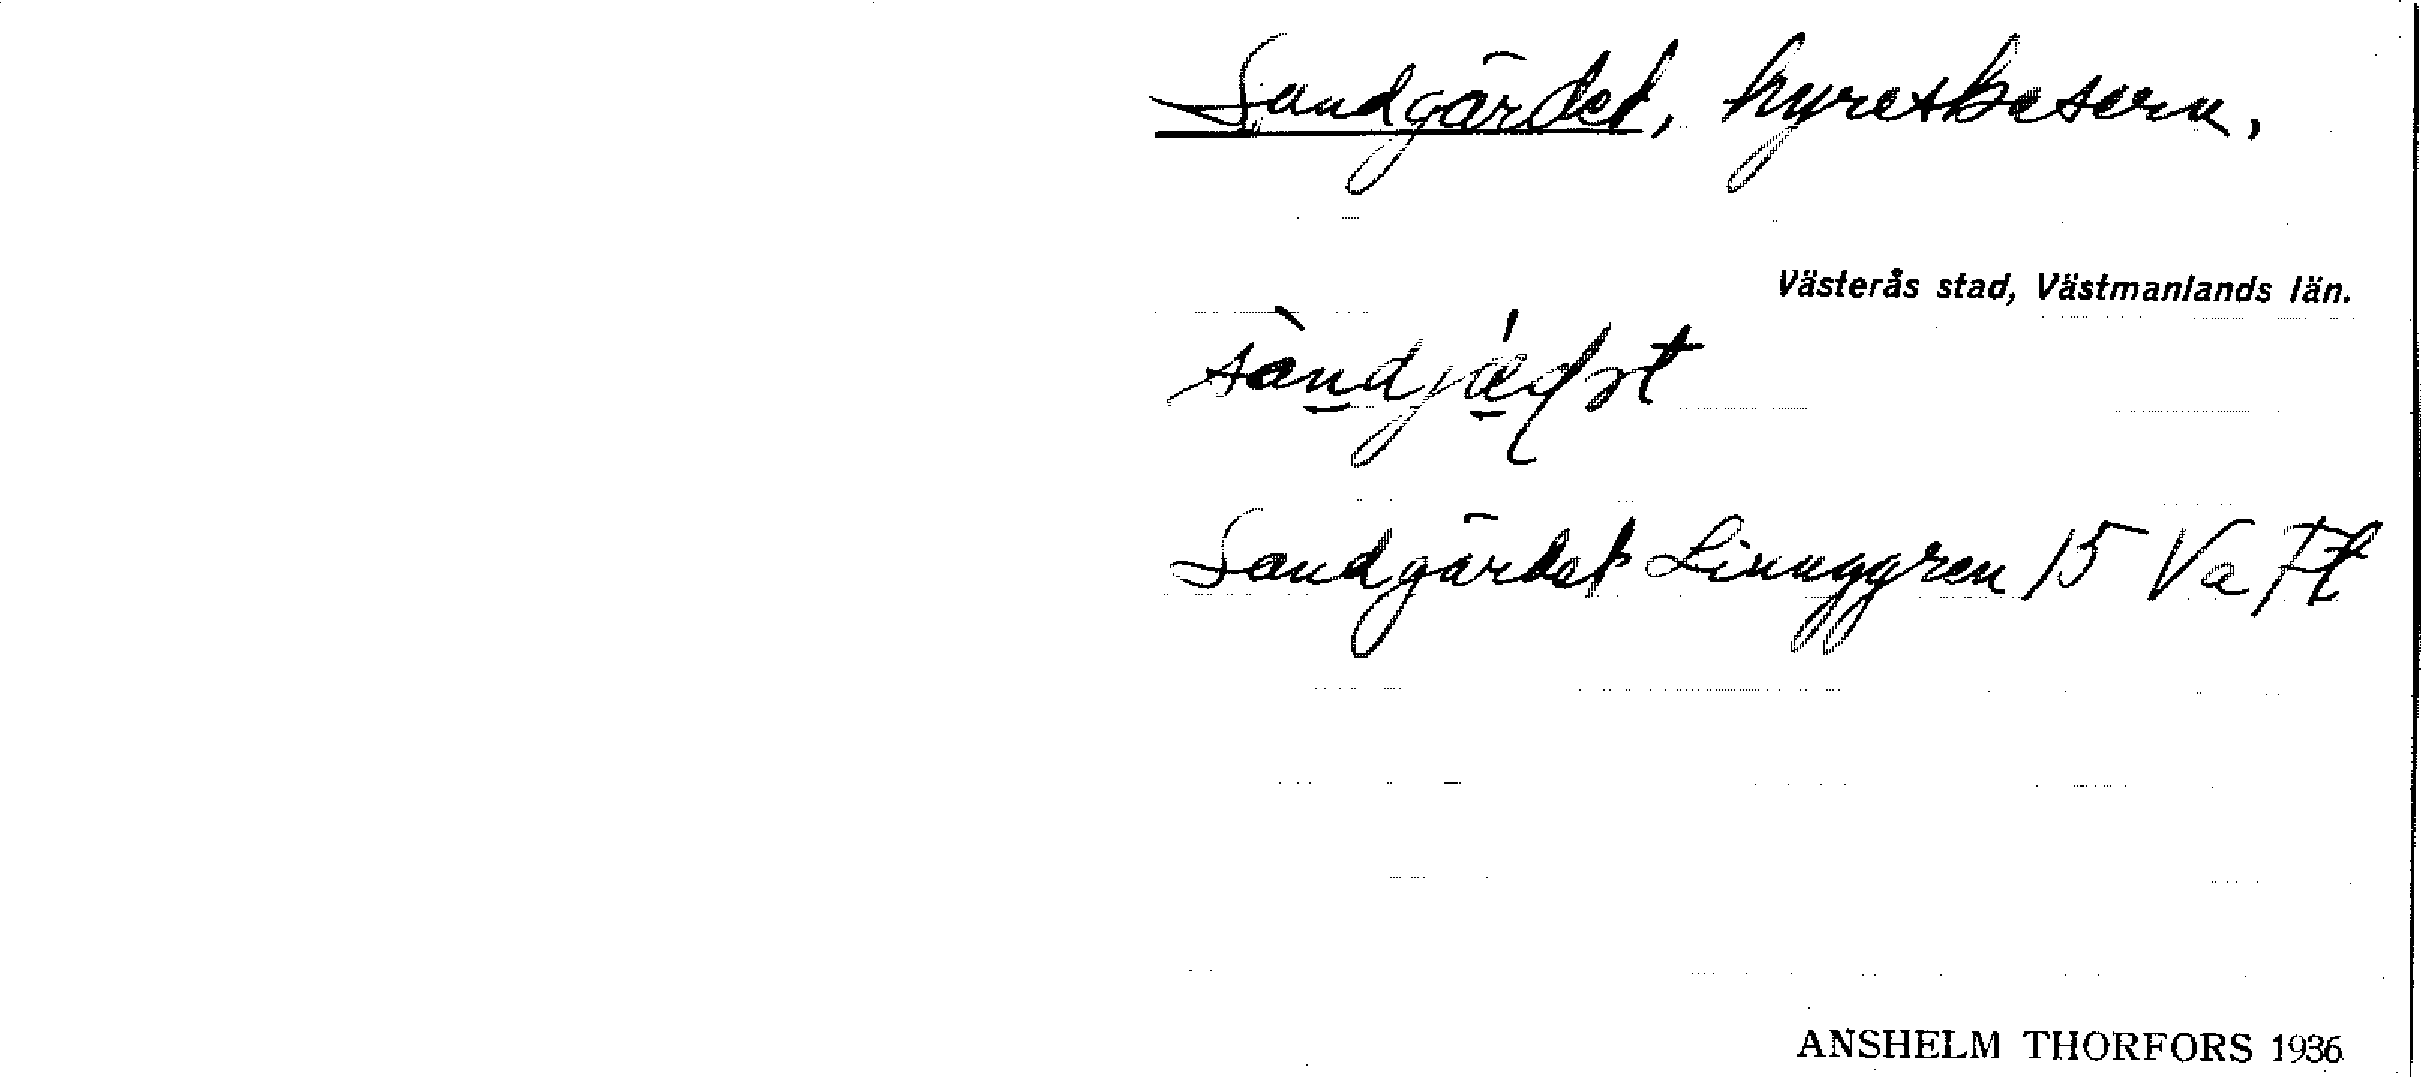 Sandgärdet, hyreskasern,
Västerås stad, Västmanlands län.
Sandgärdet Linnggren 15 Va Ft
ANSHELM THORFORS 1936